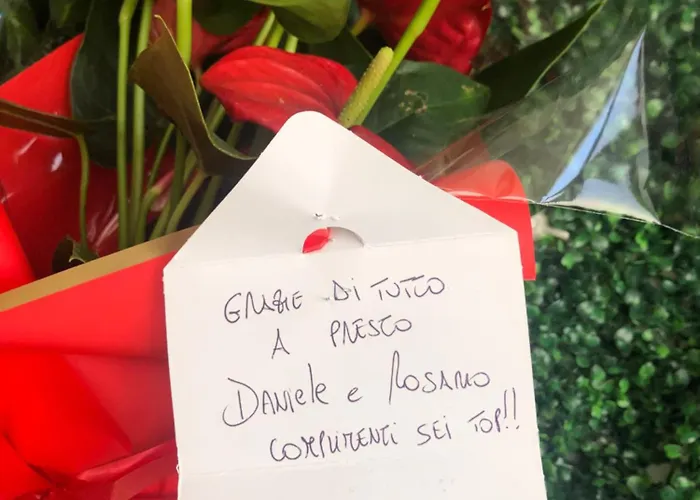 GRAZIE DI TUTTO
A PRESTO
DANIELE e ROSARIO
COMPLIMENTI SEI TOP!!